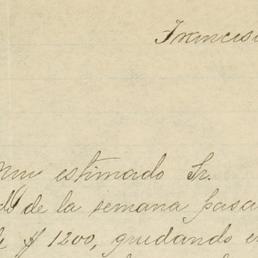 Francisc
Muy estimado Sr.
de la semana pasa
$ 1200, quedando e